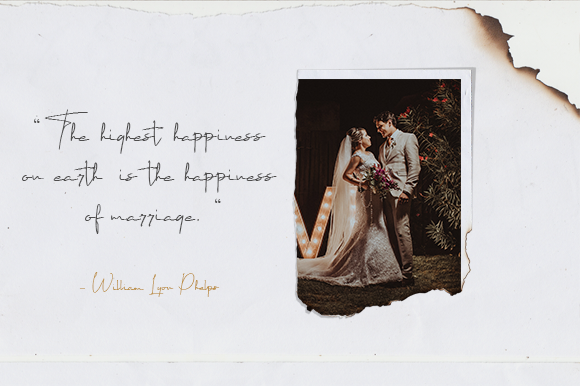 “The highest happiness
on earth is the happiness
of marriage. “
- William Lyon Phelps
M